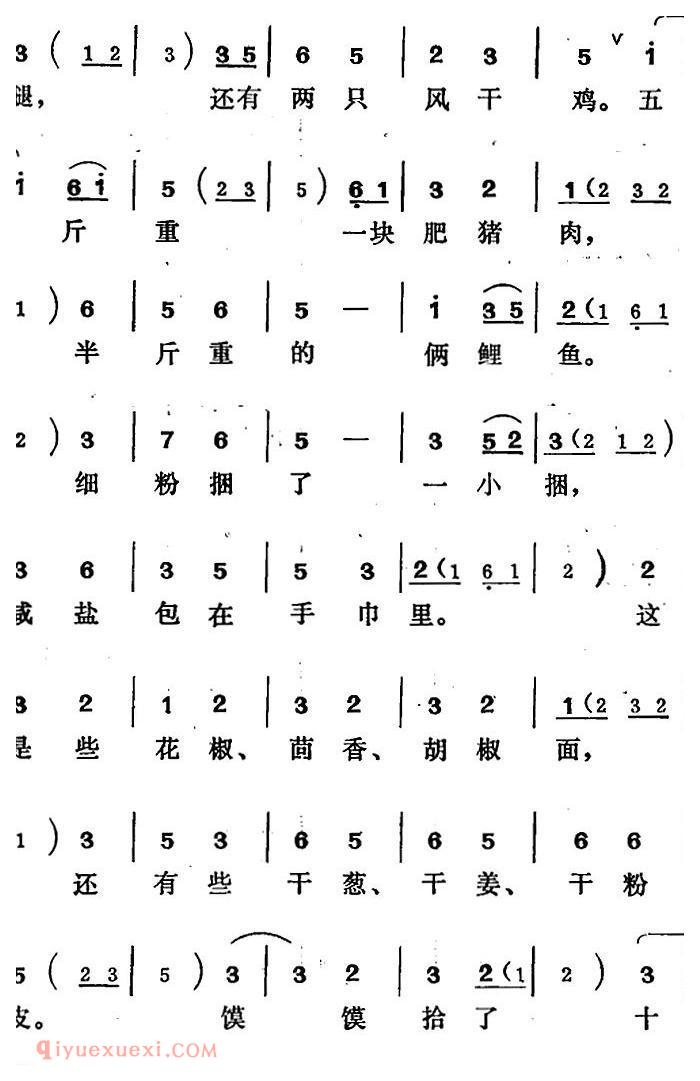 3 ( 1 2 | 3 ) 3 5 | 6 5 | 2 3 | 5 ∨ i
腿， 还有 两 只 风 干 鸡。五
i 6 i | 5 ( 2 3 | 5 ) 6 1 | 3 2 | 1 ( 2 3 2
斤 重 一块 肥 猪 肉，
1 ) 6 | 5 6 | 5 — | i 3 5 | 2 ( 1 6 1
半 斤 重 的 俩 鲤 鱼。
2 ) 3 | 7 6 | 5 — | 3 5 2 | 3 ( 2 1 2 )
细 粉 捆 了 一 小 捆，
3 6 | 3 5 | 5 3 | 2 ( 1 6 1 | 2 ) 2
咸 盐 包 在 手 巾 里。 这
3 2 | 1 2 | 3 2 | 3 2 | 1 ( 2 3 2
是 些 花 椒、茴 香、胡 椒 面，
1 ) 3 | 5 3 | 6 5 | 6 5 | 6 6
还 有 些 干 葱、干 姜、干 粉
5 ( 2 3 | 5 ) 3 | 3 2 | 3 2 ( 1 | 2 ) 3
皮。 馍 馍 拾 了 十
qiyuexuexi.COM